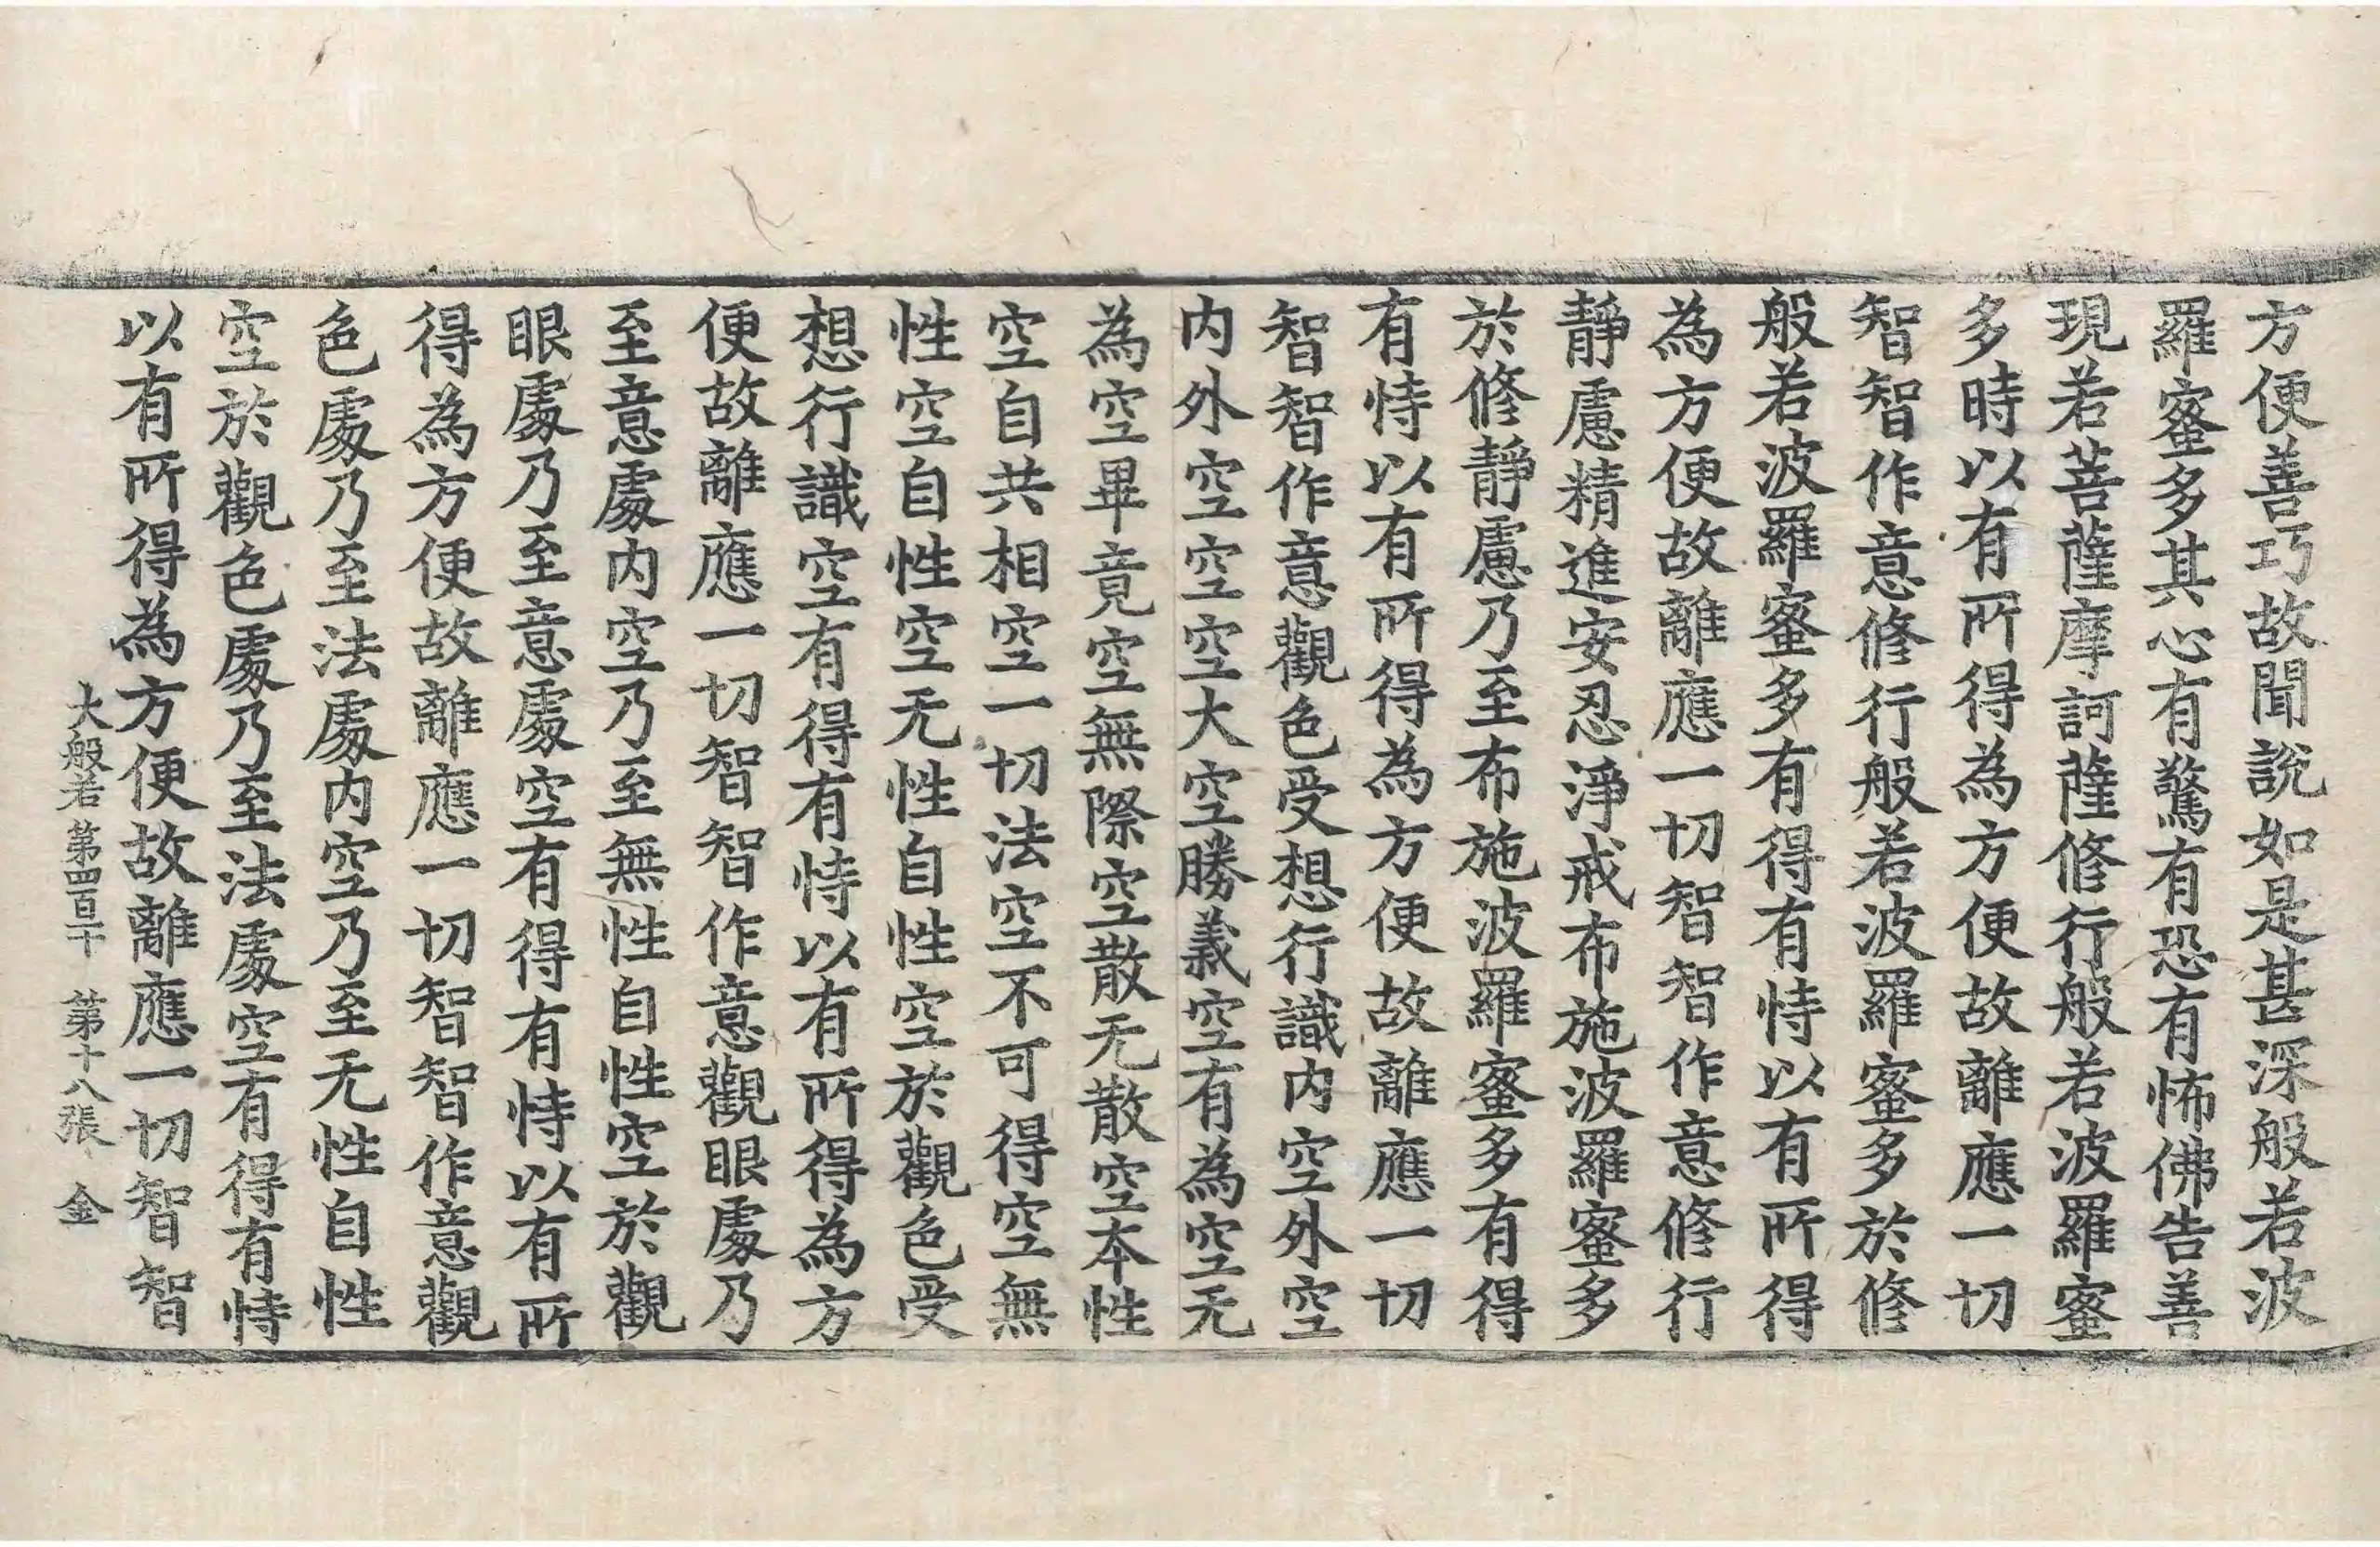 方便善巧故聞說如是甚深般若波
羅蜜多其心有驚有恐有怖佛告善
現若菩薩摩訶薩修行般若波羅蜜
多時以有所得為方便故離應一切
智智作意修行般若波羅蜜多於修
般若波羅蜜多有得有恃以有所得
為方便故離應一切智智作意修行
靜慮精進安忍淨戒布施波羅蜜多
於修靜慮乃至布施波羅蜜多有得
有恃以有所得為方便故離應一切
智智作意觀色受想行識内空外空
内外空空空大空勝義空有為空无
為空畢竟空無際空散无散空本性
空自共相空一切法空不可得空無
性空自性空无性自性空於觀色受
想行識空有得有恃以有所得為方
便故離應一切智智作意觀眼處乃
至意處内空乃至無性自性空於觀
眼處乃至意處空有得有恃以有所
得為方便故離應一切智智作意觀
色處乃至法處内空乃至无性自性
空於觀色處乃至法處空有得有恃
以有所得為方便故離應一切智智
大般若 第四百十 第十八張 金